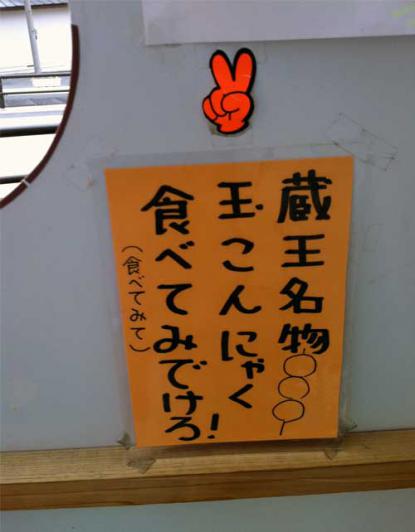 蔵王名物
玉こんにゃく
食べてみでけろ!
(食べてみて)